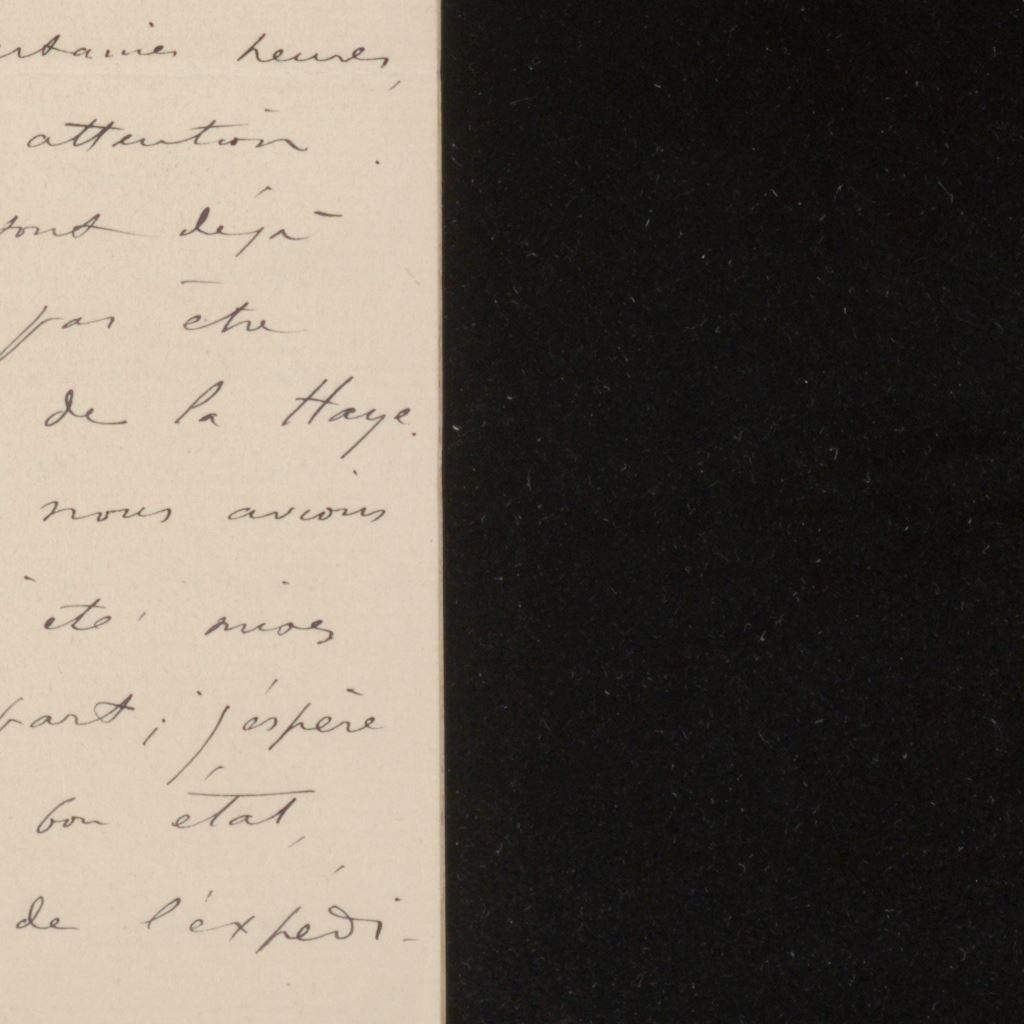 ertaines heures,
attention.
sont déjà
pas être
de la Haye.
nous avions
été mises
part ; j'éspère
bon état,
de l'éxpédi-